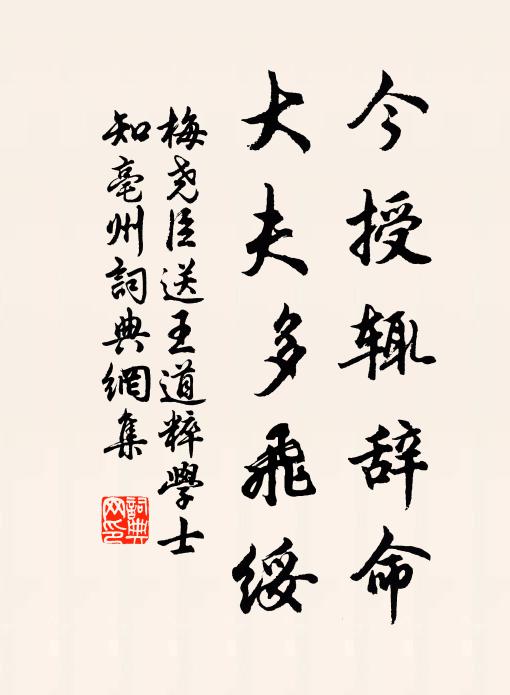 今授辄辞命
大夫多飛綏
梅尧臣送王道粹學士
知亳州詞典網集
詞典网印